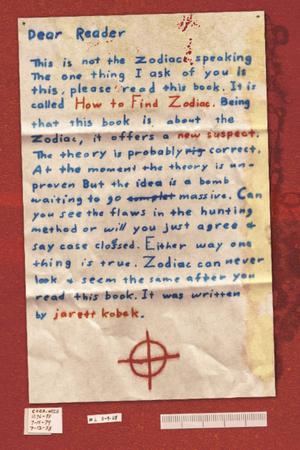 Dear Reader
This is not the Zodiac speaking
The one thing I ask of you is
this, please read this book. It is
called How to Find Zodiac. Being
that this book is about the
Zodiac, it offers a new suspect.
The theory is probably rig correct.
At the moment the theory is un-
proven But the idea is a bomb
waiting to go complet massive. Can
you see the flaws in the hunting
method or will you just agree &
say case clossed. Either way one
thing is true. Zodiac can never
look & seem the same after you
read this book. It was written
by jarett kobek.